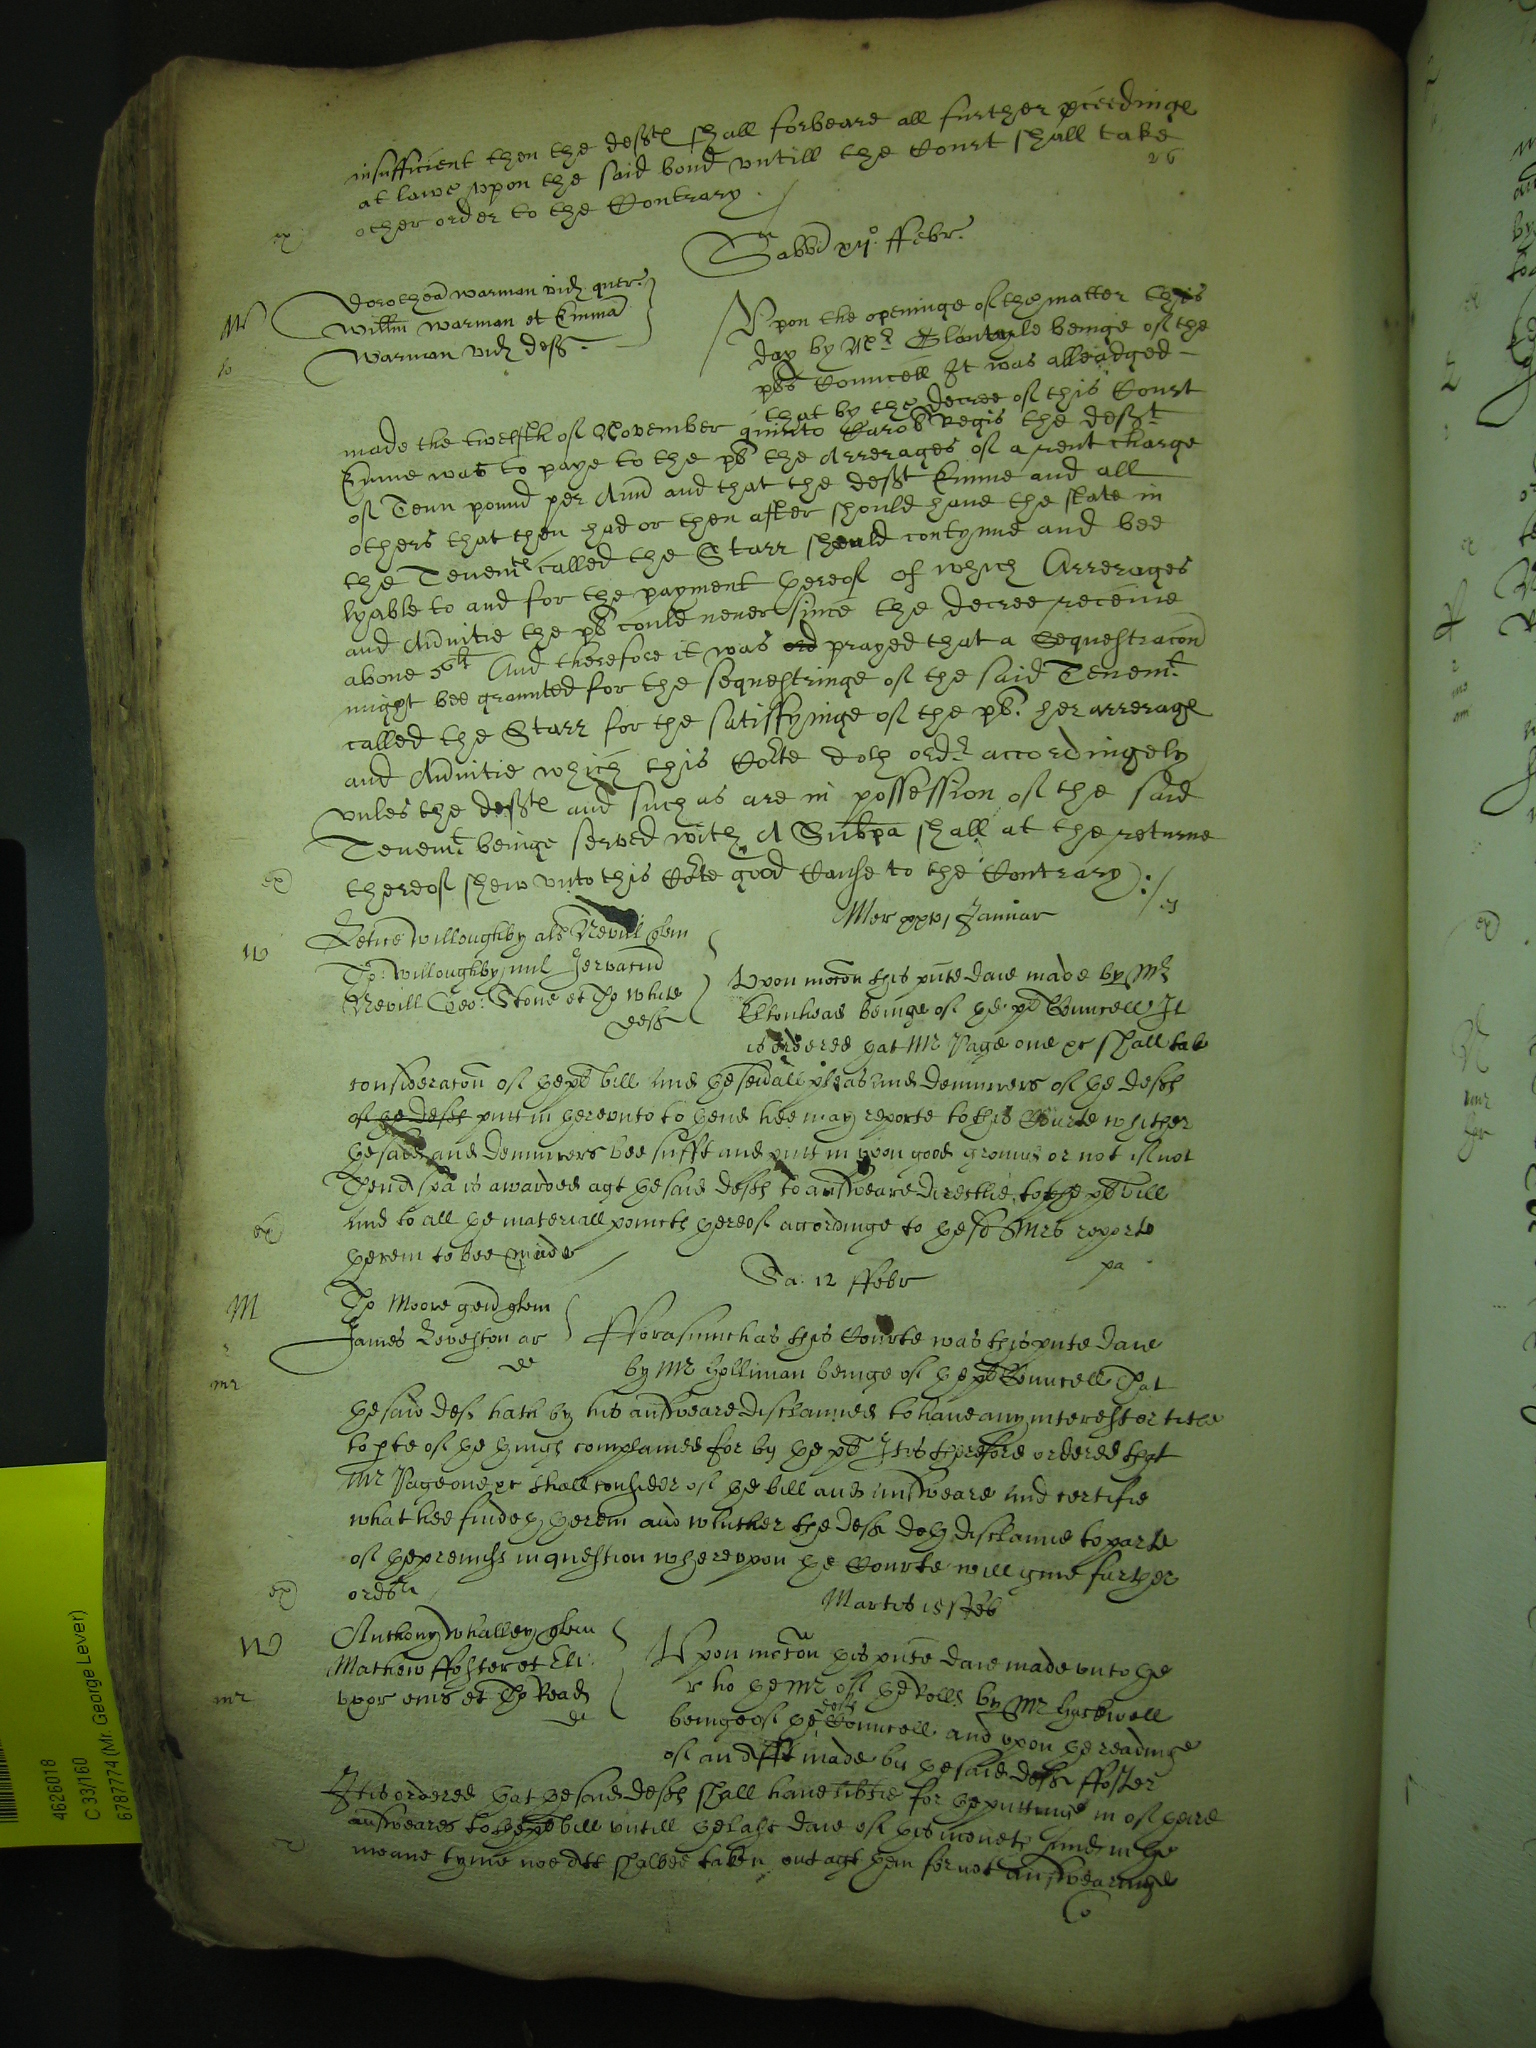 insufficient then the defts shall forbeare all further pceedings
at lawe upon the said bond untill the Court shall take
26
other order to the Contrary
ex
Sabbti xii° ffebr.
W
Dorothea Warman vid quer.
Willm Warman et Emma
Warman vid deff.
to
Vpon the openinge of the matter this
day by Mr Glanvyle beinge of the
plts Councell It was alleadged
that by the decree of this Court
made the twelfth of November quinto Caroli Regis the deft
Emme was to paye to the plt the Arrerages of a rent charge
of Tenn pound per Ann and that the deft Emme and all
others that then had or then after should have the state in
the Tenemt called the Starr should contynue and bee
lyable to and for the payment hereof of which Arrerages
and Annuitie the plt could never since the decree receive
above 56li And therefore it was ord prayed that a Sequestracon
might bee graunted for the sequestringe of the said Tenemt
called the Starr for the satisfyinge of the plts her arrerages
and Annuitie which this Corte doth ordr accordingely
unles the defts and such as are in possession of the said
Tenemt beinge served with A Subpa shall at the returne
thereof shew unto this Corte good Cause to the Contrary
ex
Mer xxvi Januar
W
Letice Willoughby als Nevill quer
Tho: Willoughby mil Jervacius
Nevill Geo: Stone et Tho White
deff
Upon mocon this pnte daie made by Mr
beinge of the plts Councell It
is ordered that Mr Page one &c shall take
consideracon of the plts bill and the sevall pleas and demurrers of the defts
of the defts putt in thereunto to thend hee may reporte to this Courte whither
the said and demurrers bee sufft and putt in upon good grounds or not if not
Then a spa is awarded agt the said defts to answeare directlie to the plts bill
And to all the materiall poincts thereof accordinge to the sd Mrs reporte
therein to bee made
ex
pa
Sa: 12 ffebr
M
Tho Moore gen quer
James Leveston ar
de
mr
Fforasmuch as this Courte was this pnte daie
by Mr Holliman beinge of the plts Councell That
the said deft hath by his answeare disclaimed to have any interest or title
to pte of the things complained for by the plt It is therefore ordered that
Mr Page one &c shall consider of the bill and answeare and certifie
what hee findeth therein and whither the deft doth disclaime to parte
of the premiss in question whereupon the Courte will give further
order
ex
Martis 15 Feb
W
Anthony Whalley quer
Mathew ffoster et Eli:
uxor eius et Tho Read
de
mr
Vpon mocon this pnte daie made unto the
r ho the Mr of the Rolls by Mr Hackwell
beinge of the defts Councell and upon the readinge
of an afft made by the said deft ffoster
It is ordered that the said defts shall have libtie for the puttinge in of theire
answeares to the plts bill untill the last daie of this moneth And in the
meane tyme noe att shalbee taken out agt them for not answearinge
Co
4626018
C 33/160
6787774 (Mr. George Lever)